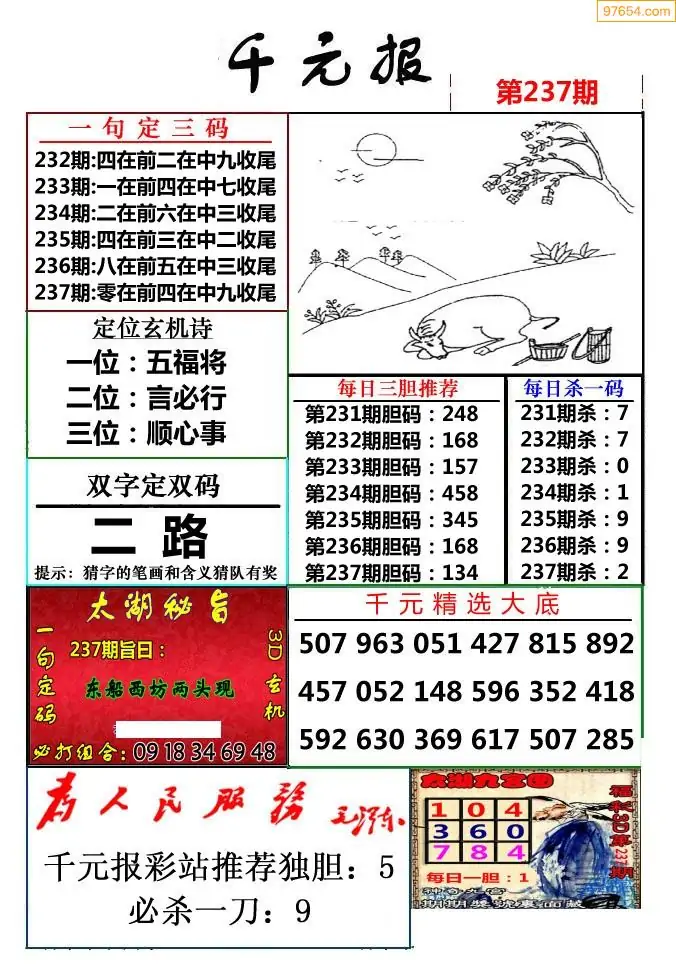 97654.com
千元报
第237期
一句定三码
232期:四在前二在中九收尾
233期:一在前四在中七收尾
234期:二在前六在中三收尾
235期:四在前三在中二收尾
236期:八在前五在中三收尾
237期:零在前四在中九收尾
定位玄机诗
一位：五福将
二位：言必行
三位：顺心事
双字定双码
二路
提示：猜字的笔画和含义猜队有奖
每日三胆推荐
第231期胆码：248
第232期胆码：168
第233期胆码：157
第234期胆码：458
第235期胆码：345
第236期胆码：168
第237期胆码：134
每日杀一码
231期杀：7
232期杀：7
233期杀：0
234期杀：1
235期杀：9
236期杀：9
237期杀：2
太湖秘旨
一句定码
237期旨曰：
东船西坊两头现
3D玄机
必打组合：09 18 34 69 48
千元精选大底
507 963 051 427 815 892
457 052 148 596 352 418
592 630 369 617 507 285
为人民服务
毛泽东
千元报彩站推荐独胆：5
必杀一刀：9
太湖九宫图
1 0 4
3 6 0
7 8 4
福彩3D第237期
每日一胆：1
期期奖号里面藏